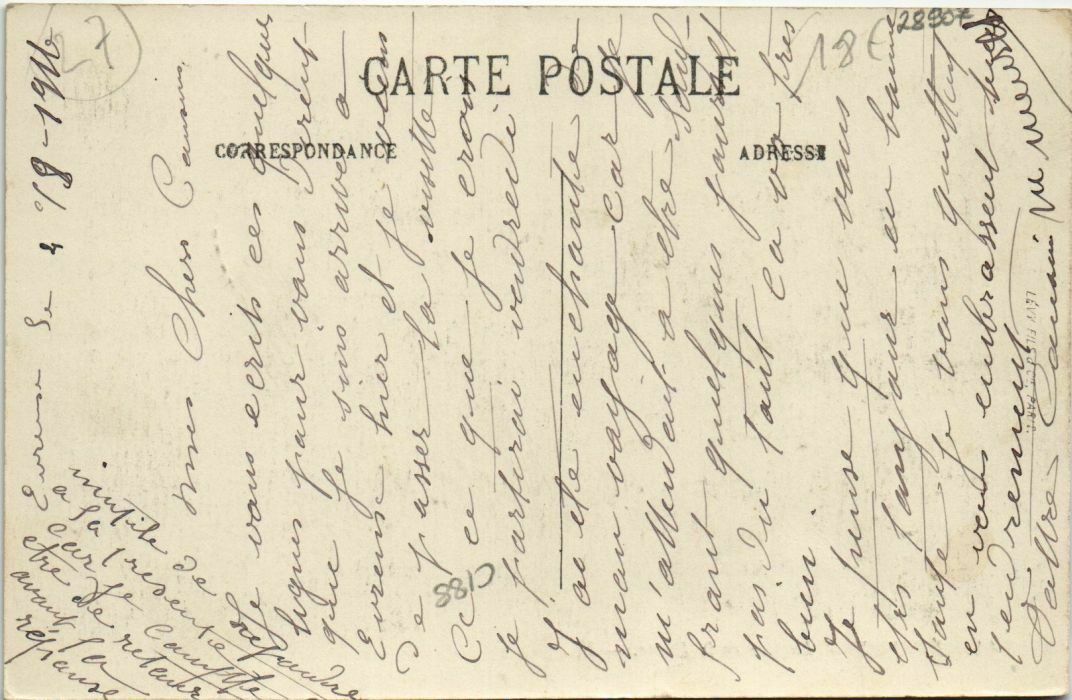 CARTE POSTALE
CORRESPONDANCE
ADRESSE
27
18 €
28907
C188
Evreux le 4/8-1916
mes Chers Cousins
Je vous ecrit ces quelque
lignes pour vous
que je suis arriver a
Evreux hier et je viens
de passer la visitte
Ce ce que je crois
je partirai vendredi
J ai ete enchante de
mon voyage car je
m'attendait a etre
frant quelques jours
pas du tout ca va tres
bien
Je pense que vous
etes toujour en bonne
sante je vous quitte
en vous embrassent
tendrement
Votre Cousin
inutile de
a la presente
car je compte
etre de retour
avant la
reponse
LEVY FILS & Cie PARIS